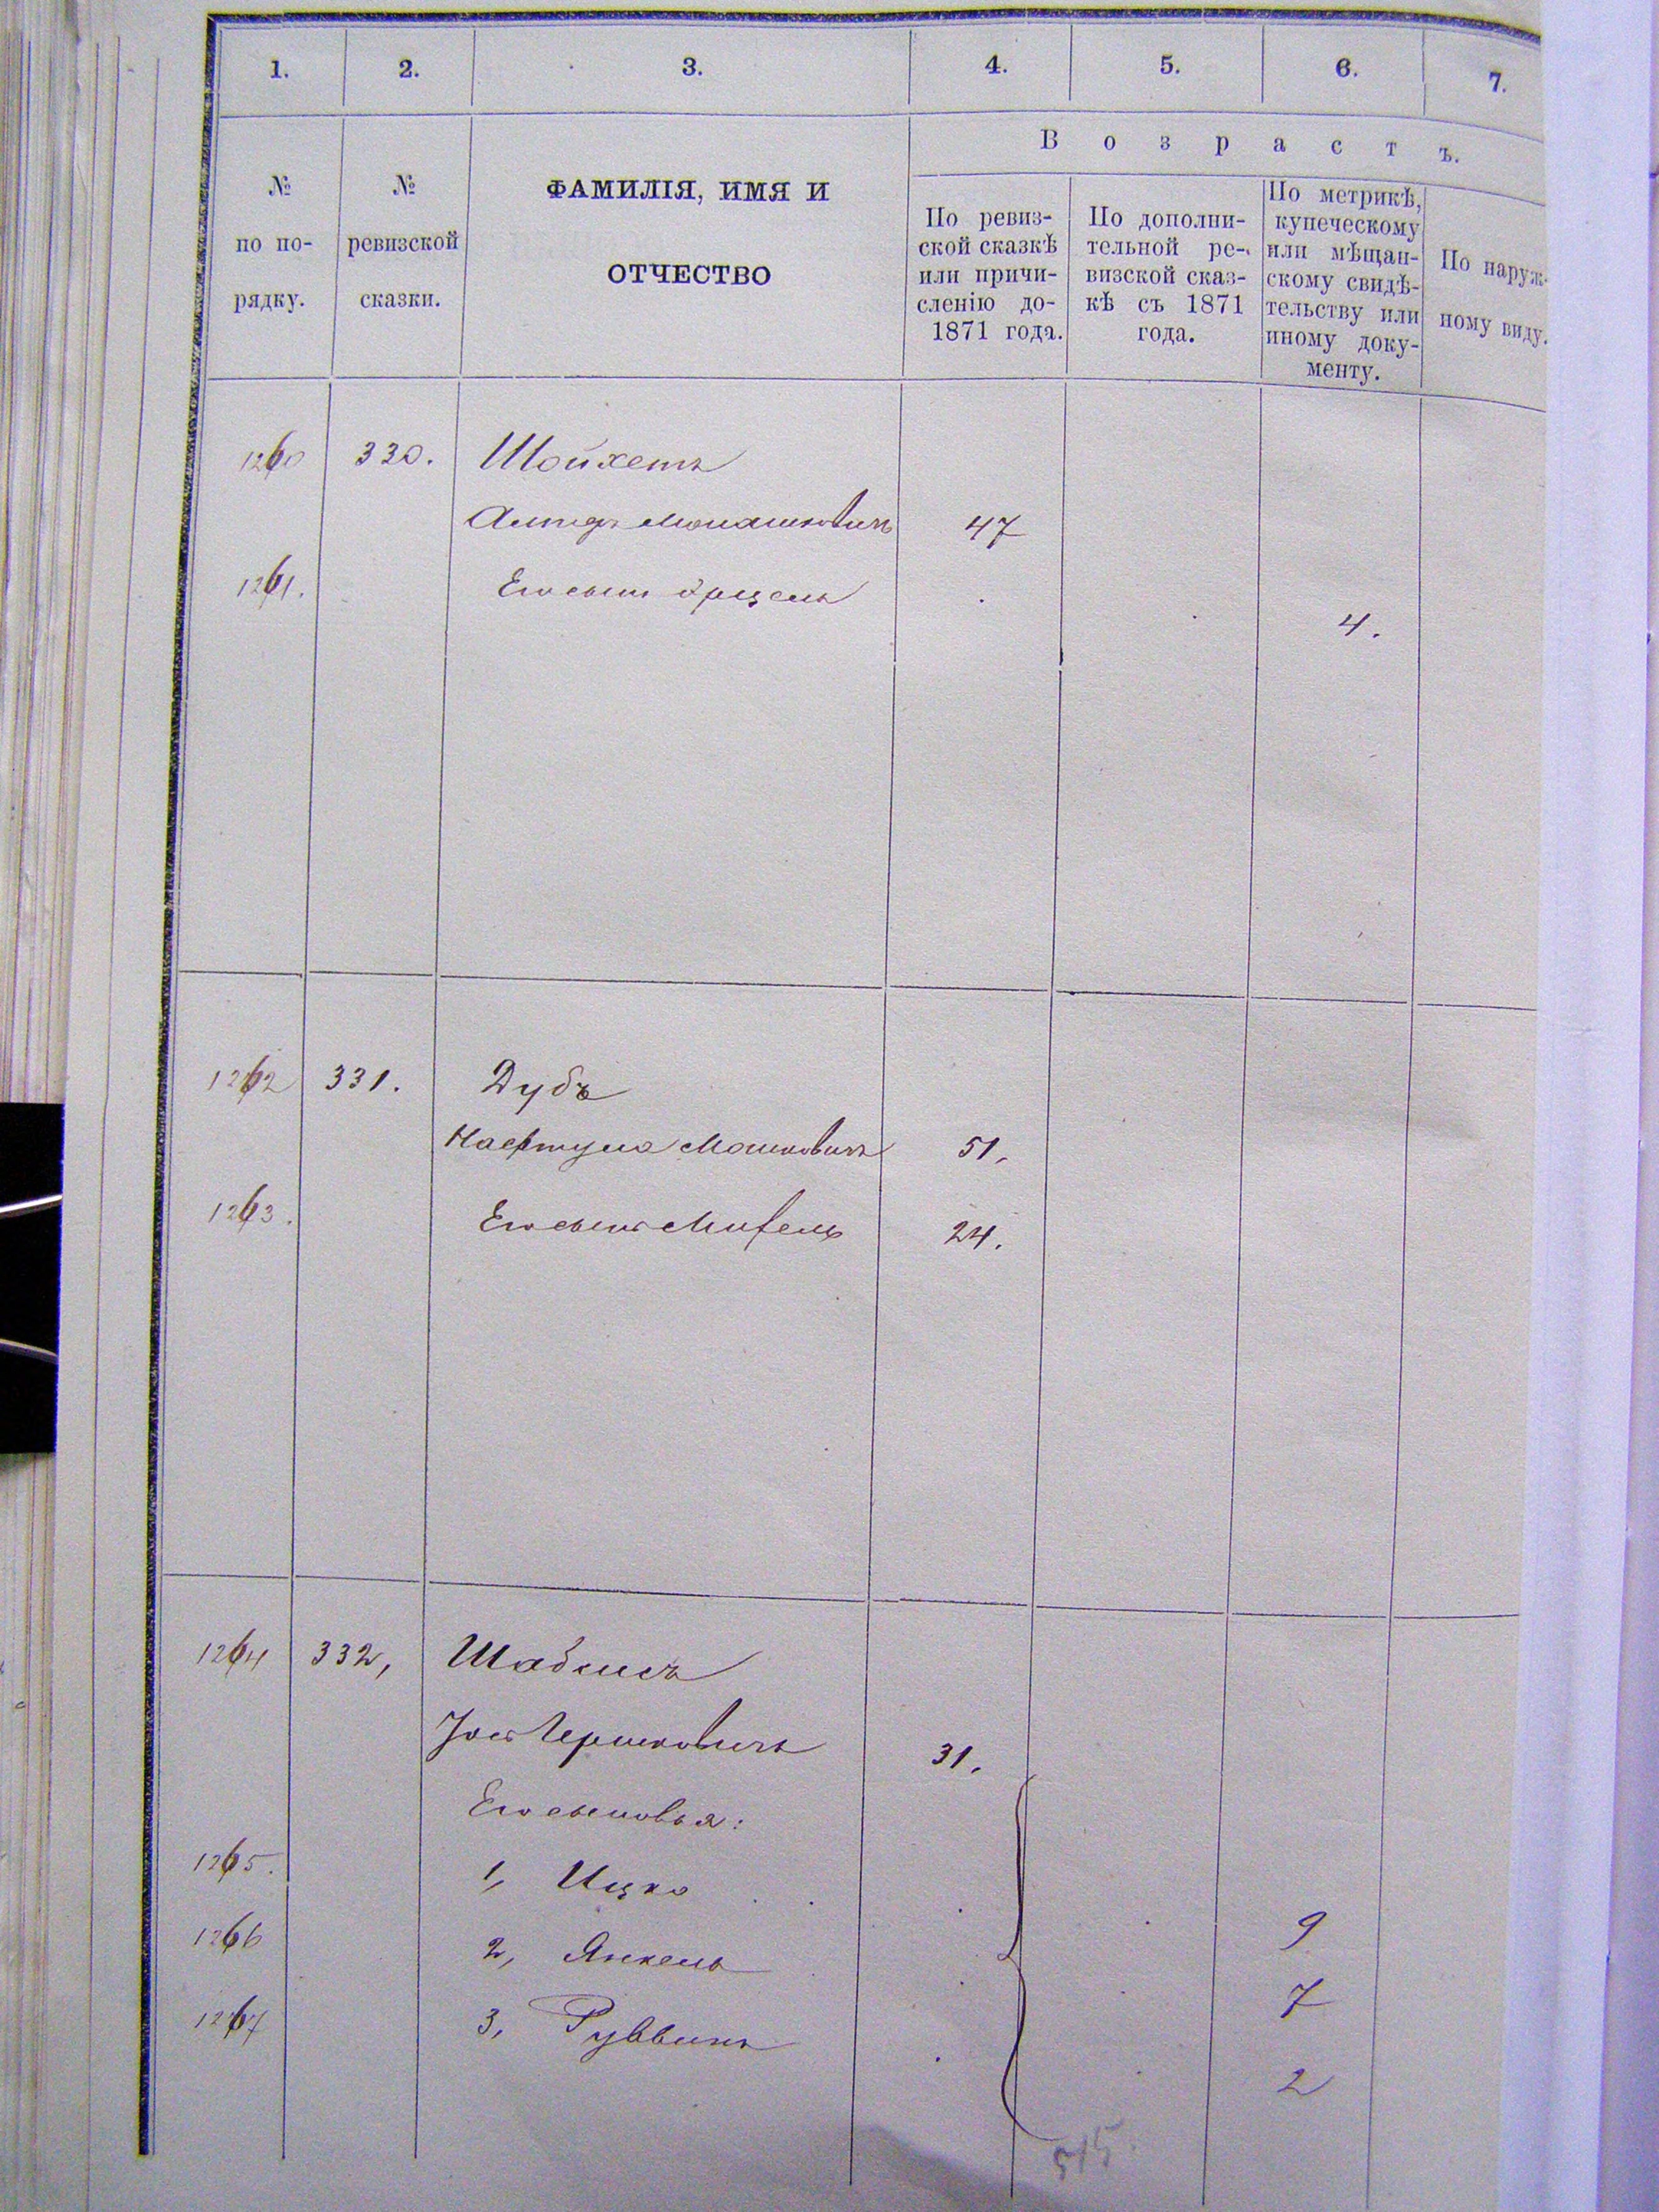 1. 2. 3. 4. 5. 6. 7.
В о з р а с т ъ.
№ по по-рядку.
№ ревизской сказки.
ФАМИЛІЯ, ИМЯ И
ОТЧЕСТВО
По ревиз-
ской сказкѣ
или причи-
сленію до-
1871 года.
По дополни-
тельной ре-
визской сказ-
кѣ съ 1871
года.
По метрикѣ,
купеческому
или мѣщан-
скому свидѣ-
тельству или
иному доку-
менту.
По наруж-
ному виду.
1260 330. Шойхетъ
47
1261. Его сынъ 4.
1262 331. Дубъ
Нафтула Мошковичъ 51.
1263. Его сынъ 24.
1264 332, Шабсисъ
Іось Гершковичъ 31.
Его сыновья:
1265. 1, Ицко 9
1266 2, Янкель 7
1267 3, Руввинъ 2
515.